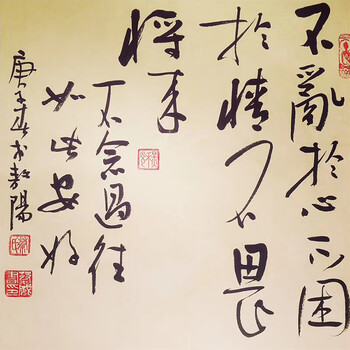 不亂於心不困
於情不畏
將來
不念過往
如此安好
庚子春陽